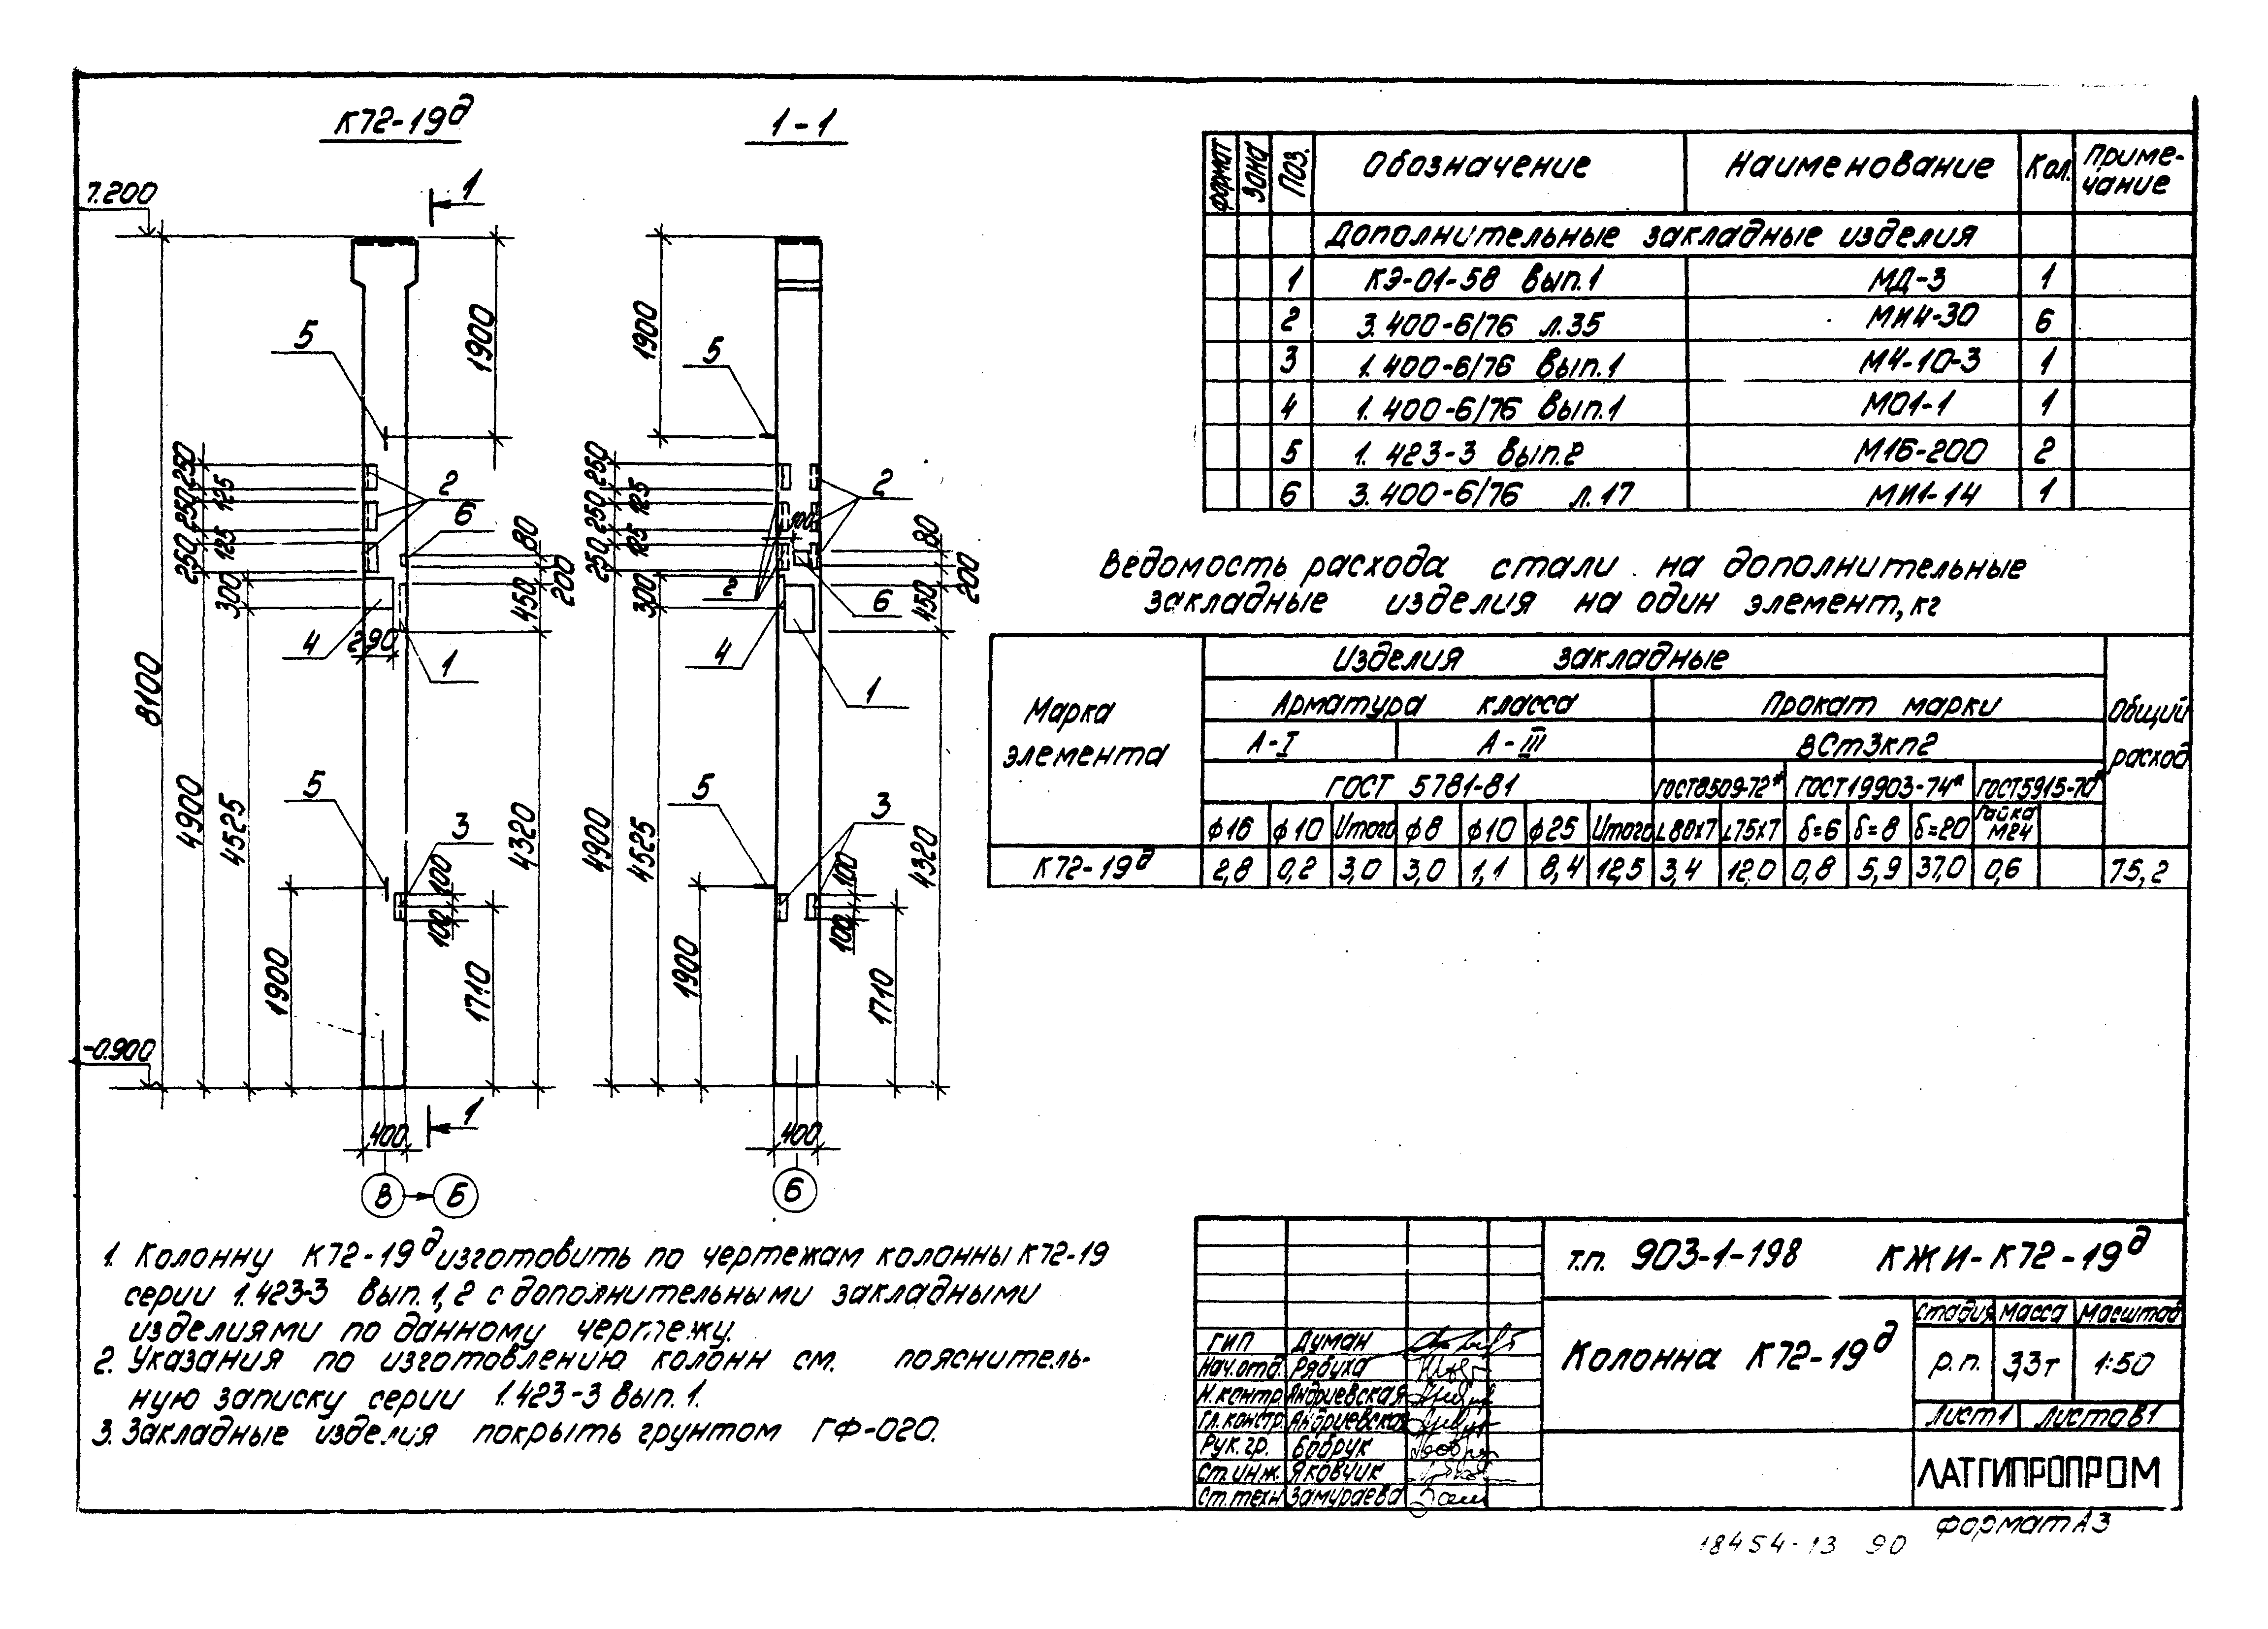 К72-19д
1-1
7.200
1
1900
1900
5
5
250
250
250
125
125
2
6
80
200
450
300
4
290
1
8100
4900
4525
4320
5
3
100
100
1900
1710
-0.900
1
400
В
Б
250
250
250
125
125
100
2
2
6
80
200
450
300
4
1
4900
4525
4320
5
3
100
100
1900
1710
400
Б
Формат
Зона
Поз.
Обозначение
Наименование
Кол.
Приме-
чание
Дополнительные закладные изделия
1 КЭ-01-58 Вып.1 МД-3 1
2 3.400-6/76 л.35 МИ4-30 6
3 1.400-6/76 Вып.1 М4-10-3 1
4 1.400-6/76 Вып.1 М01-1 1
5 1.423-3 Вып.2 М16-200 2
6 3.400-6/76 л.17 МИ1-14 1
Ведомость расхода стали на дополнительные
закладные изделия на один элемент, кг
Марка
элемента
Изделия закладные
Общий
расход
Арматура класса
Прокат марки
А-I
А-III
ВСт3кп2
ГОСТ 5781-81
ГОСТ8509-72*
ГОСТ19903-74*
ГОСТ5915-70*
ф16 ф10 Итого ф8 ф10 ф25 Итого L80х7 L75х7 δ=6 δ=8 δ=20 Гайка М24
К72-19д 2,8 0,2 3,0 3,0 1,1 8,4 12,5 3,4 12,0 0,8 5,9 37,0 0,6 75,2
1. Колонну К72-19д изготовить по чертежам колонны К72-19
серии 1.423-3 вып.1,2 с дополнительными закладными
изделиями по данному чертежу.
2. Указания по изготовлению колонн см. пояснитель-
ную записку серии 1.423-3 вып.1.
3. Закладные изделия покрыть грунтом ГФ-020.
т.п. 903-1-198 КЖИ-К72-19д
Колонна К72-19д
Стадия Масса Масштаб
р.п. 3,3т 1:50
Лист1 Листов1
ГИП Думан
Нач.отд. Рябуха
Н.контр Андриевская
Гл.констр. Андриевская
Рук.гр. Бобрук
Ст.инж. Яковчик
Ст.техн Замураева
ЛАТГИПРОПРОМ
Формат А3
18454-13 90